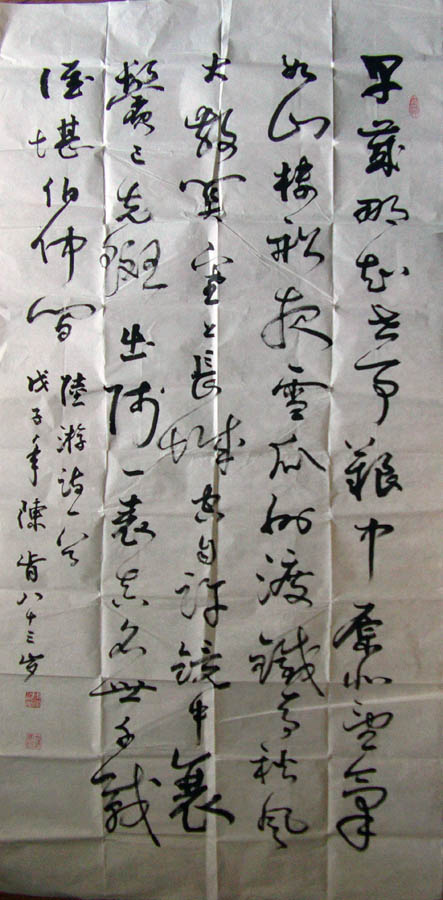 早歲那知世事艱中原北望氣
如山樓船夜雪瓜洲渡鐵馬秋風
大散関塞上長城空自許鏡中衰
鬢已先斑出師一表真名世千載
誰堪伯仲間
陸游詩一首
戊子年陳肯八十三岁